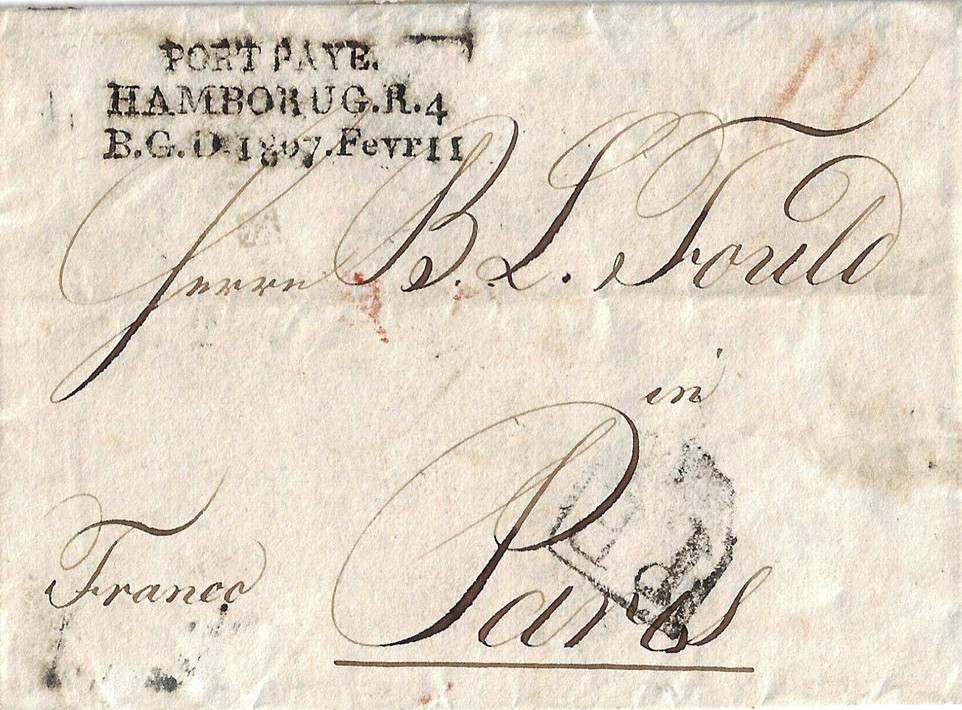 PORT PAYE.
HAMBORUG.R.4
B.G.D.1807.Fevr11
Herrn B. L. Fould
in
Paris
Franco